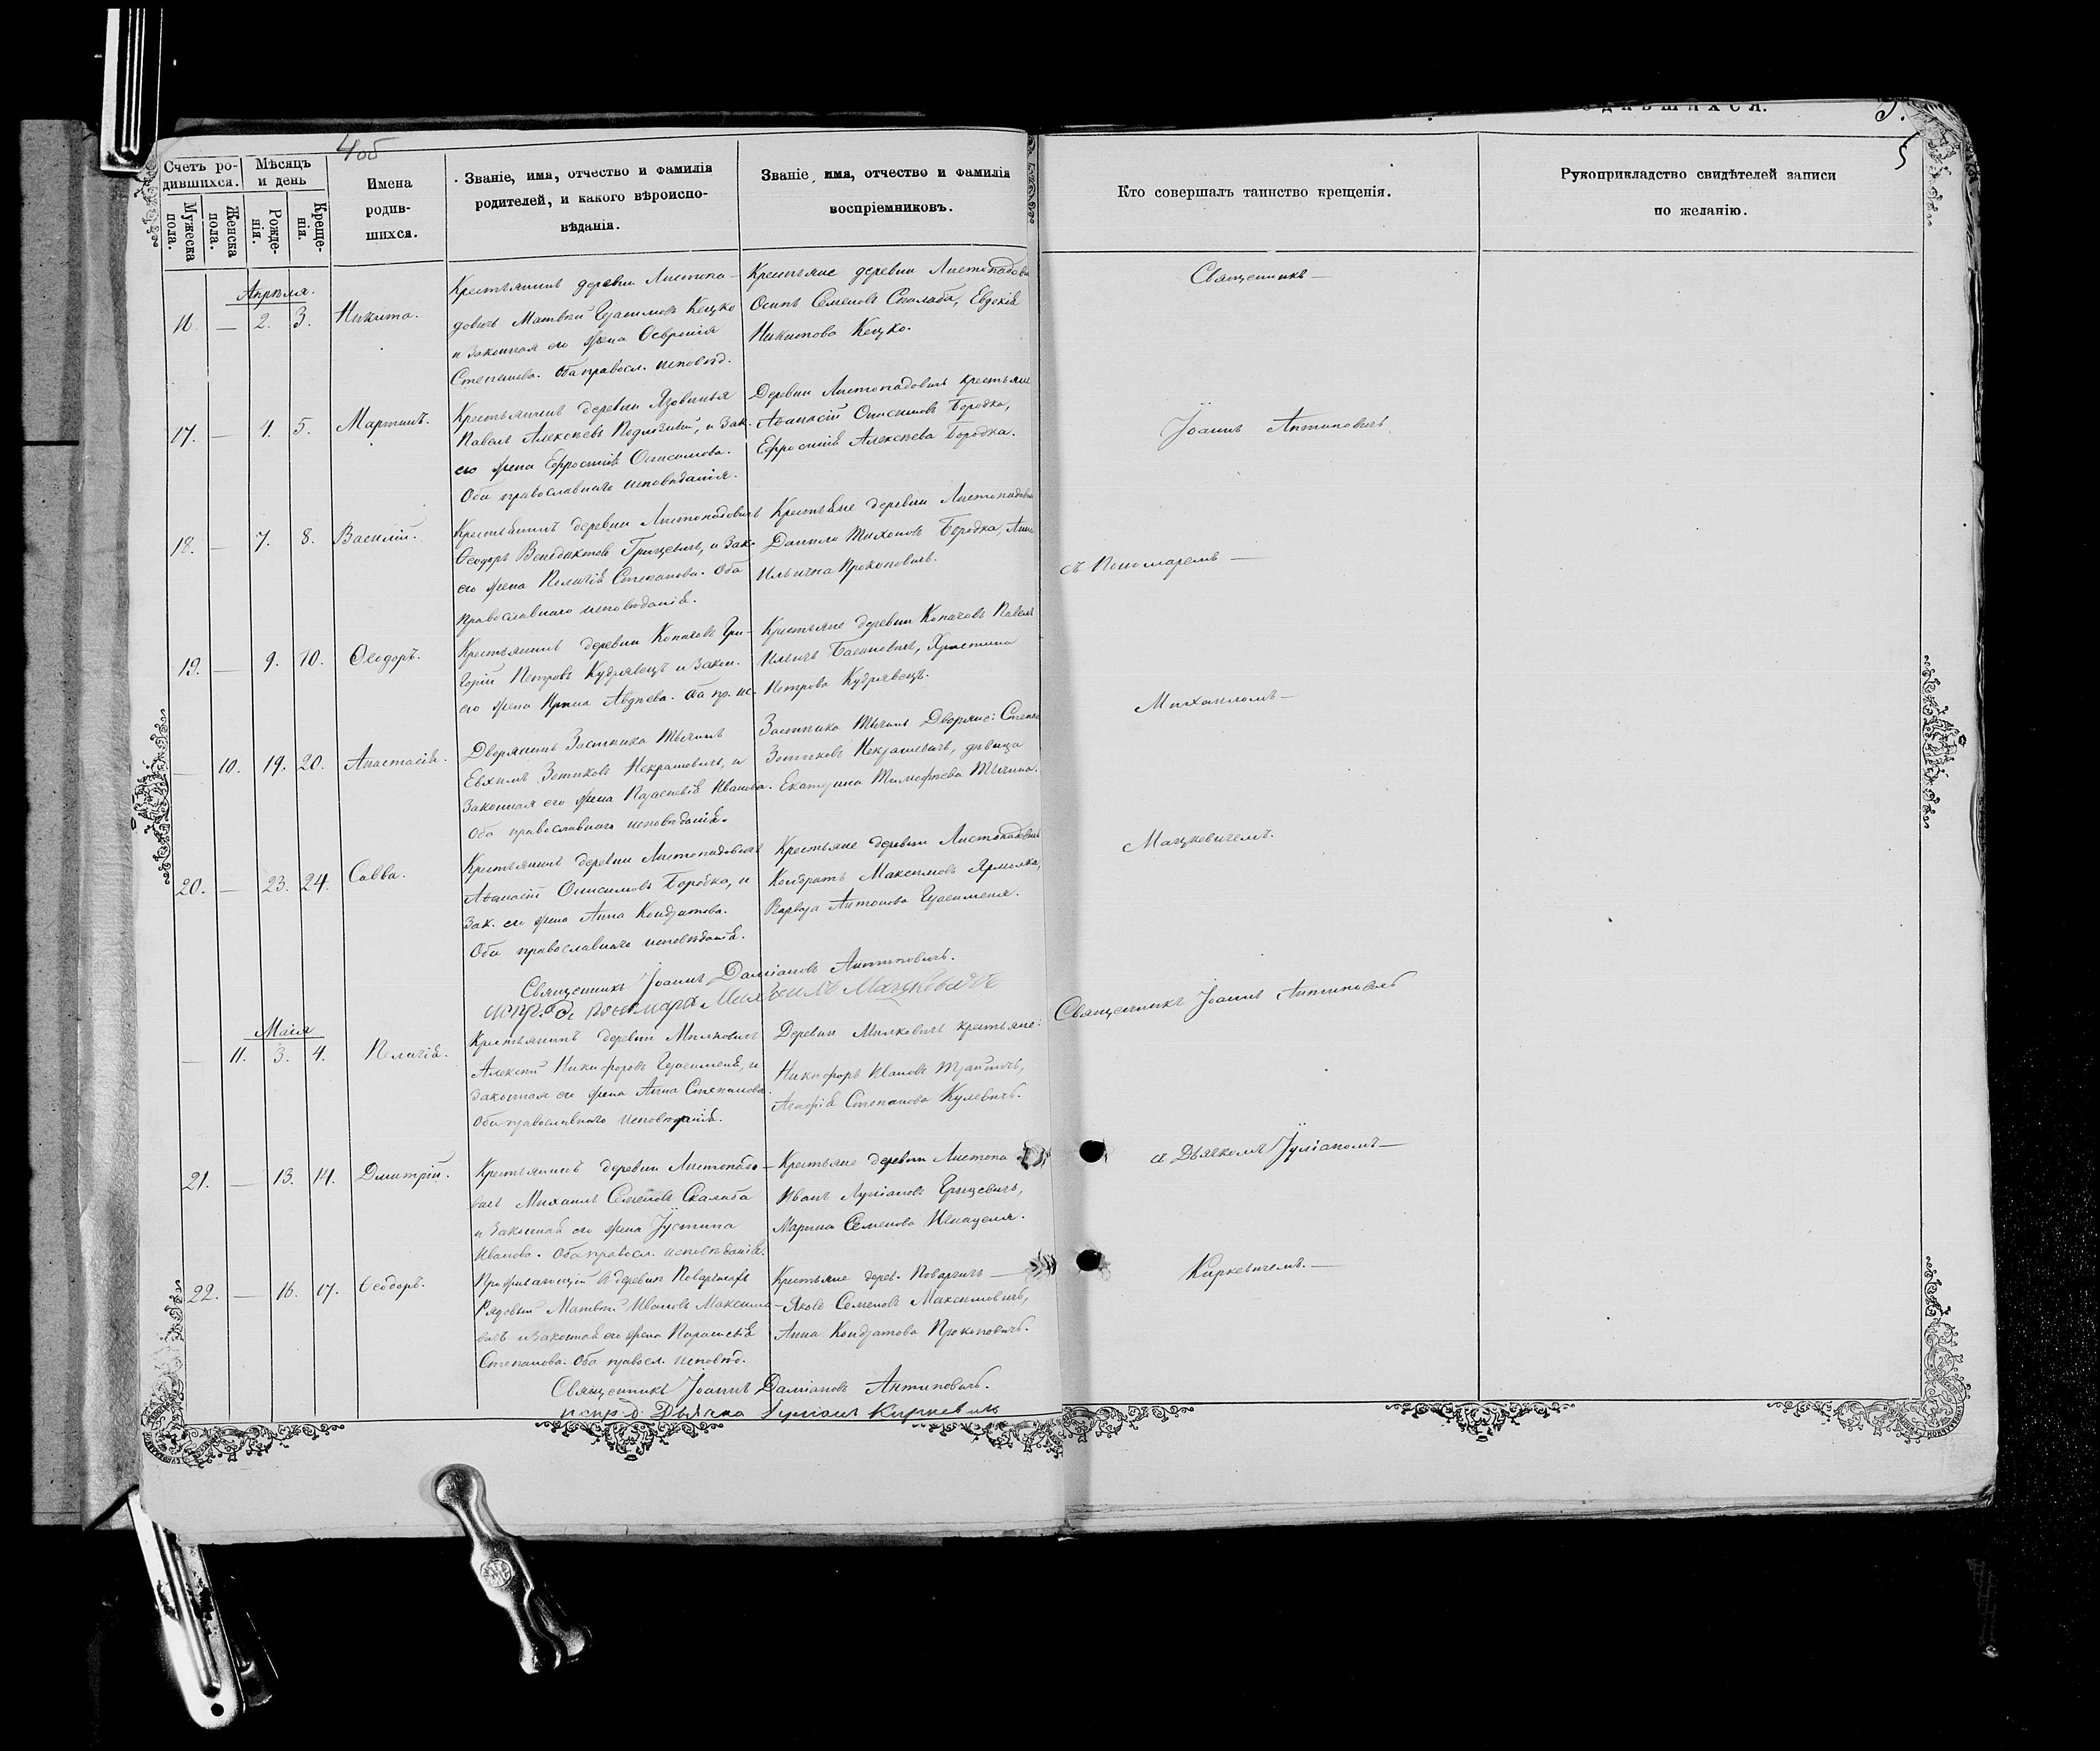 4об
5.
5
Счетъ ро-
дившихся.
Мѣсяцъ
и день
Мужеска
пола.
Женска
пола.
Рожде-
нія.
Креще-
нія.
Имена
родив-
шихся.
Званіе, имя, отчество и фамилія
родителей, и какого вѣроиспо-
вѣданія.
Званіе, имя, отчество и фамилія
воспріемниковъ.
Кто совершалъ таинство крещенія.
Рукоприкладство свидѣтелей записи
по желанію.
Апрѣля.
16. — 2. 3. Никита.
Крестьянинъ деревни Листопа-
довичъ Матвѣй Герасимовъ Кецко
и законная его жена Ѳеврония
Степанова. Оба правосл. исповѣд.
Крестьяне деревни Листопадович
Осипъ Семеновъ Скалаба, Евдокія
Никитова Кецко.
Священникъ —
17. — 4. 5. Мартинъ.
Крестьянинъ деревни
Павелъ Алексѣевъ и Зак.
его жена Ефросинія Онисимова.
Оба православнаго исповѣданія.
Деревни Листопадовичъ крестьяне
Аѳанасій Онисимовъ Бородка,
Ефросинія Алексѣева Бородка.
Іоаннъ Антиповичъ
18. — 7. 8. Василій.
Крестьянинъ деревни Листопадовичъ
Ѳеодоръ Венедиктовъ Грицевичъ, и Зак.
его жена Пелагія Степанова. Оба
православнаго исповѣданія.
Крестьяне деревни Листопадович
Данило Тихоновъ Бородка, Анна
Ильична Прокоповичъ.
съ Пономаремъ —
19. — 9. 10. Ѳеодоръ.
Крестьянинъ деревни Копачовъ Гри-
горій Петровъ Кудрявецъ и Закон.
его жена Ирина Авдѣева. Оба пр. ис.
Крестьяне деревни Копачовъ Павелъ
Ильичъ Христина
Петрова Кудрявецъ.
Михаиломъ —
— 10. 19. 20. Анастасія.
Дворянинъ Застѣнка Тычинъ
Евхимъ Зотиковъ Некрашевичъ, и
Законная его жена Параскевія Иванова.
Оба православнаго исповѣданія.
Застѣнка Тычинъ Дворяне: Степанъ
Зотиковъ Некрашевичъ, дѣвица
Екатерина Тимофѣева Тычина.
Мацкевичемъ.
20. — 23. 24. Савва.
Крестьянинъ деревни Листопадовичъ
Аѳанасій Онисимовъ Бородка, и
Зак. его жена Анна Кондратова.
Оба православнаго исповѣданія.
Крестьяне деревни Листопадовичъ
Кондратъ Максимовъ Ярмолка,
Варвара Антонова Герасименя.
Священникъ Іоаннъ Даміановъ Антиповичъ.
испр. д. пономаря Михаилъ Мацкевичъ
Маія
— 11. 3. 4. Пелагія.
Крестьянинъ деревни Милковичъ
Алексѣй Никифоровъ Герасименя, и
законная его жена Анна Степанова.
Оба православнаго исповѣданія.
Деревни Милковичъ крестьяне:
Никифоръ Ивановъ
Агафія Степанова Кулевичъ.
Священникъ Іоаннъ Антиповичъ
21. — 13. 14. Дмитрій.
Крестьянинъ деревни Листопадо-
вичъ Михаилъ Семеновъ Скалаба
и Законная его жена Іустина
Иванова. Оба правосл. исповѣданія.
Крестьяне деревни Листопа
Иванъ Лукіановъ Грицевичъ,
Марина Семенова
съ Дьячкомъ Іуліаномъ —
22. — 16. 17. Ѳеодоръ.
Проживающій въ деревнѣ
Рядовый Матвѣй Ивановъ Максимо-
вичъ и Законная его жена Параскевія
Степанова. Оба правосл. исповѣд.
Крестьяне дерев. —
Яковъ Семеновъ Максимовичъ,
Анна Кондратова Прокоповичъ.
Киркевичемъ. —
Священникъ Іоаннъ Даміановъ Антиповичъ.
испр. д. Дьячка Іуліанъ Киркевичъ